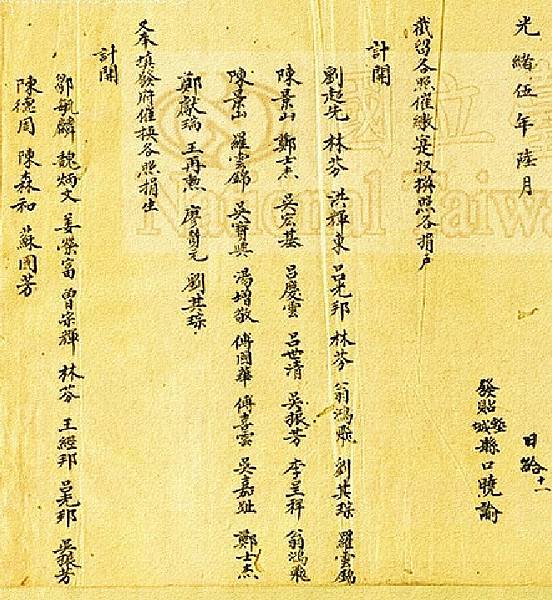 光緒伍年陸月
日給十一
發貼城縣口曉諭
截留各照催繳定收換照各捐戶
計開
劉起先 林芬 洪輝東 呂光邦 林芬 翁鴻飛 劉其琛 羅雲錦
陳景山 鄭士杰 吳宗基 呂慶雲 呂世清 吳振芳 李呈祥 翁鴻飛
陳景山 羅雲錦 吳賓興 湯增敬 傅國華 傅喜雲 吳嘉趾 鄭士杰
鄭獻瑞 王再 廖 元 劉其琛
又奉填發府催換各照捐生
計開
鄒毓麟 魏炳文 姜榮富 曾宗輝 林芬 王經邦 呂光邦 吳振芳
陳德周 陳森和 蘇國芳
國立臺
National Taiwa